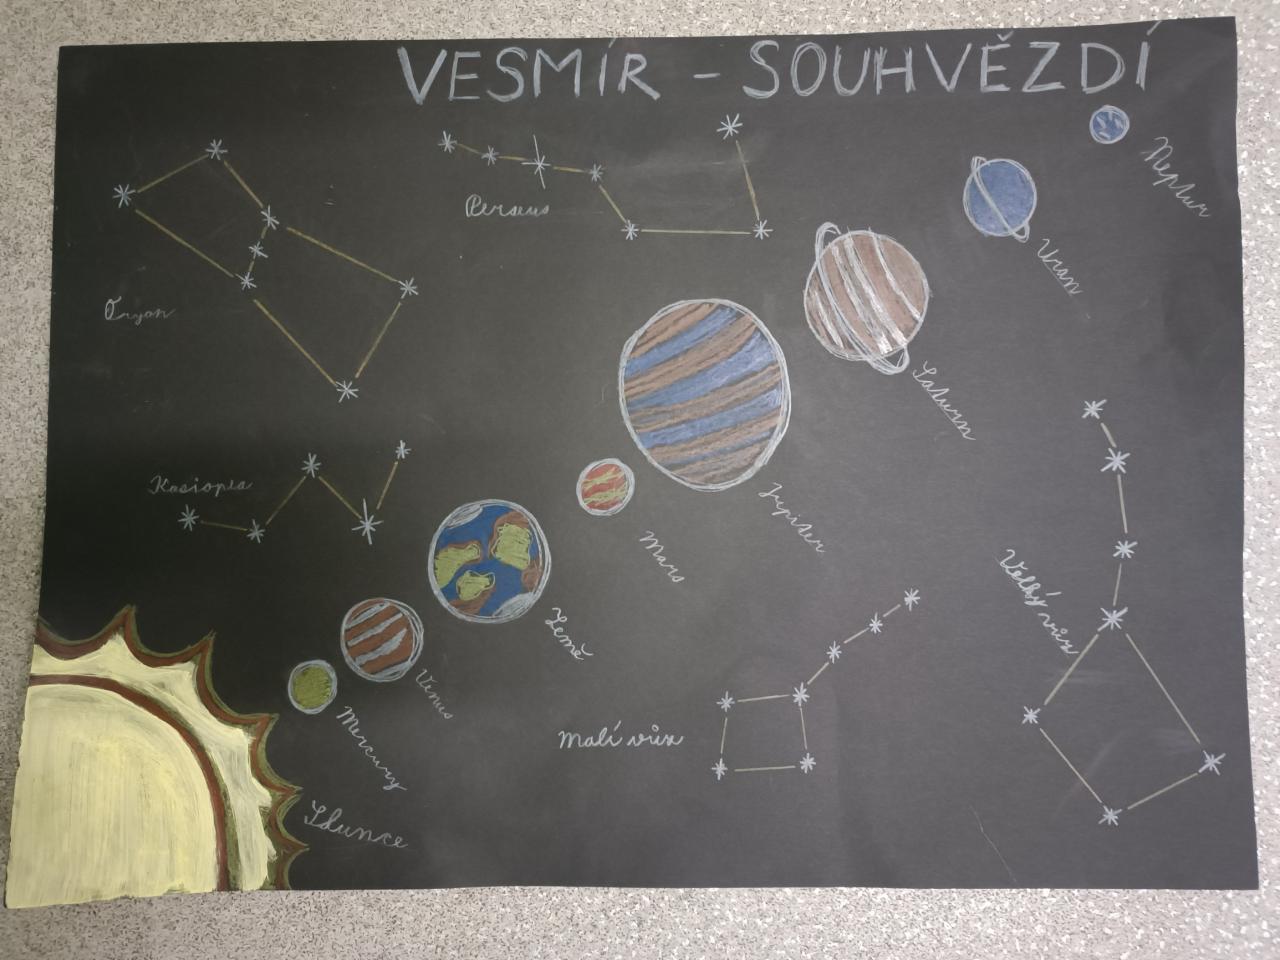 VESMÍR - SOUHVĚZDÍ
Neptun
Perseus
Uran
Oryon
Saturn
Kasiopea
Jupiter
Mars
Velký vůz
Země
Venus
Malí vůz
Mercury
Slunce